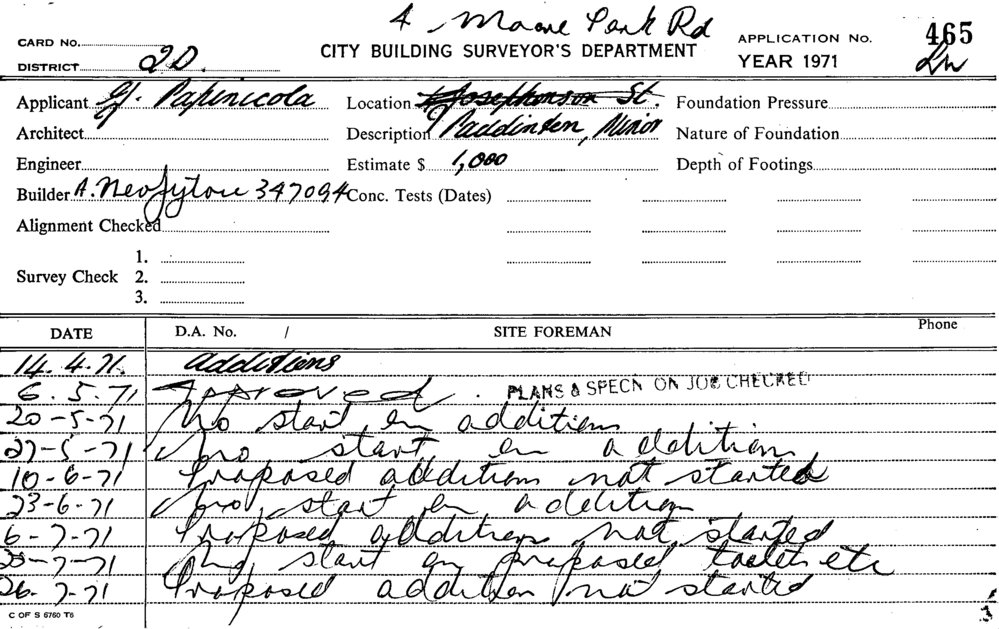 4 Moore Park Rd
CARD No. CITY BUILDING SURVEYOR'S DEPARTMENT APPLICATION No. 465
DISTRICT 2D. YEAR 1971
Applicant G. Papinicola Location Josephson St. Foundation Pressure
Architect Description Paddington, Minor Nature of Foundation
Engineer Estimate $ 1,000 Depth of Footings
Builder A. Neofytou 347094 Conc. Tests (Dates)
Alignment Checked
1.
Survey Check 2.
3.
DATE D.A. No. / SITE FOREMAN Phone
14.4.71. Additions
6.5.71 Approved. PLANS & SPECN ON JOB CHECKED
20-5-71 No start on additions
27-5-71 No start on addition
10-6-71 Proposed additions not started
23-6-71 No start on addition
6-7-71 Proposed additions not started
-7-71 No start on proposed toilets etc
26-7-71 Proposed addition not started
C OF S 6760 T6 3